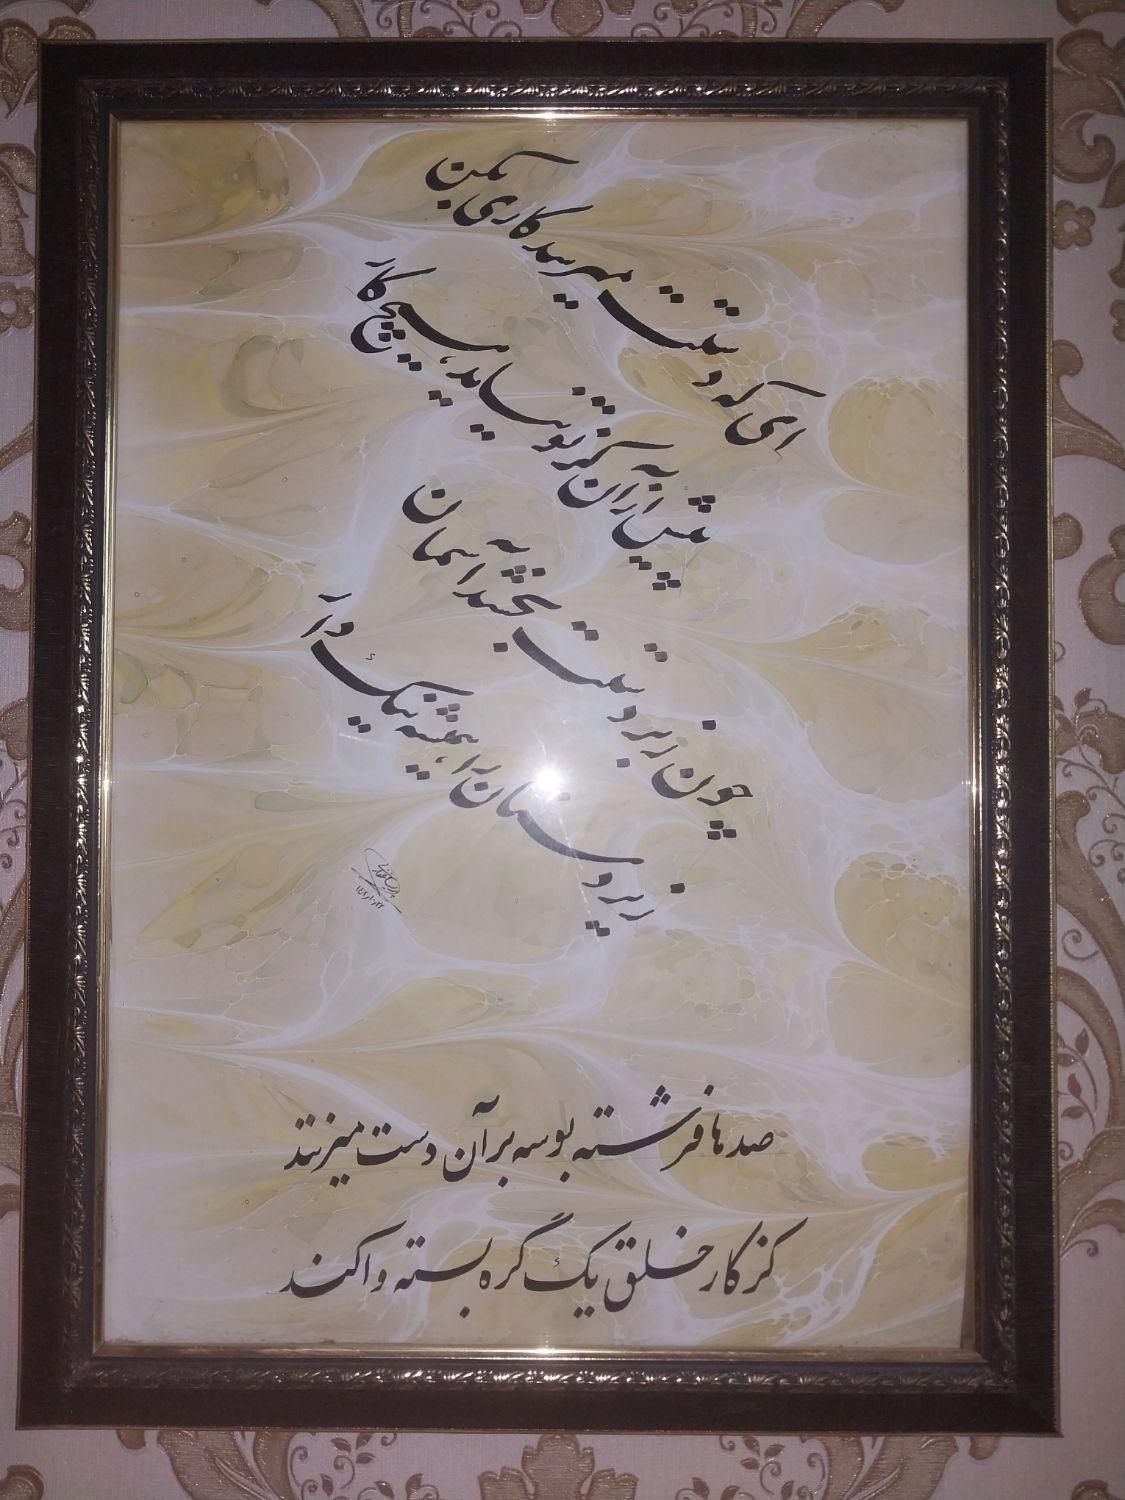 ای که دستت میرسد کاری بکن
پیش از آن کز تو نیاید هیچ کار
چون زبردستیت بخشید آسمان
زیردستان را همیشه نیک دار
۱۴۰۲/۱/۲۲
صدها فرشته بوسه بر آن دست میزنند
کز کار خلق یک گره بسته وا کند